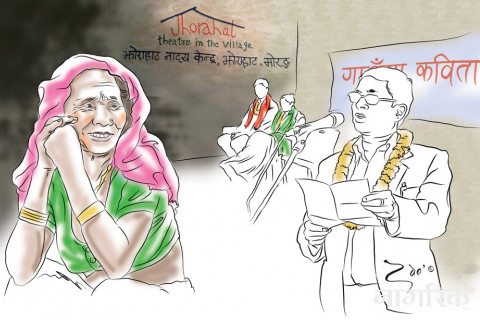 Jhorahat
theatre in the village
झोराहाट नाट्य केन्द्र, झोराहाट, मोरङ
कविता
नागरिक